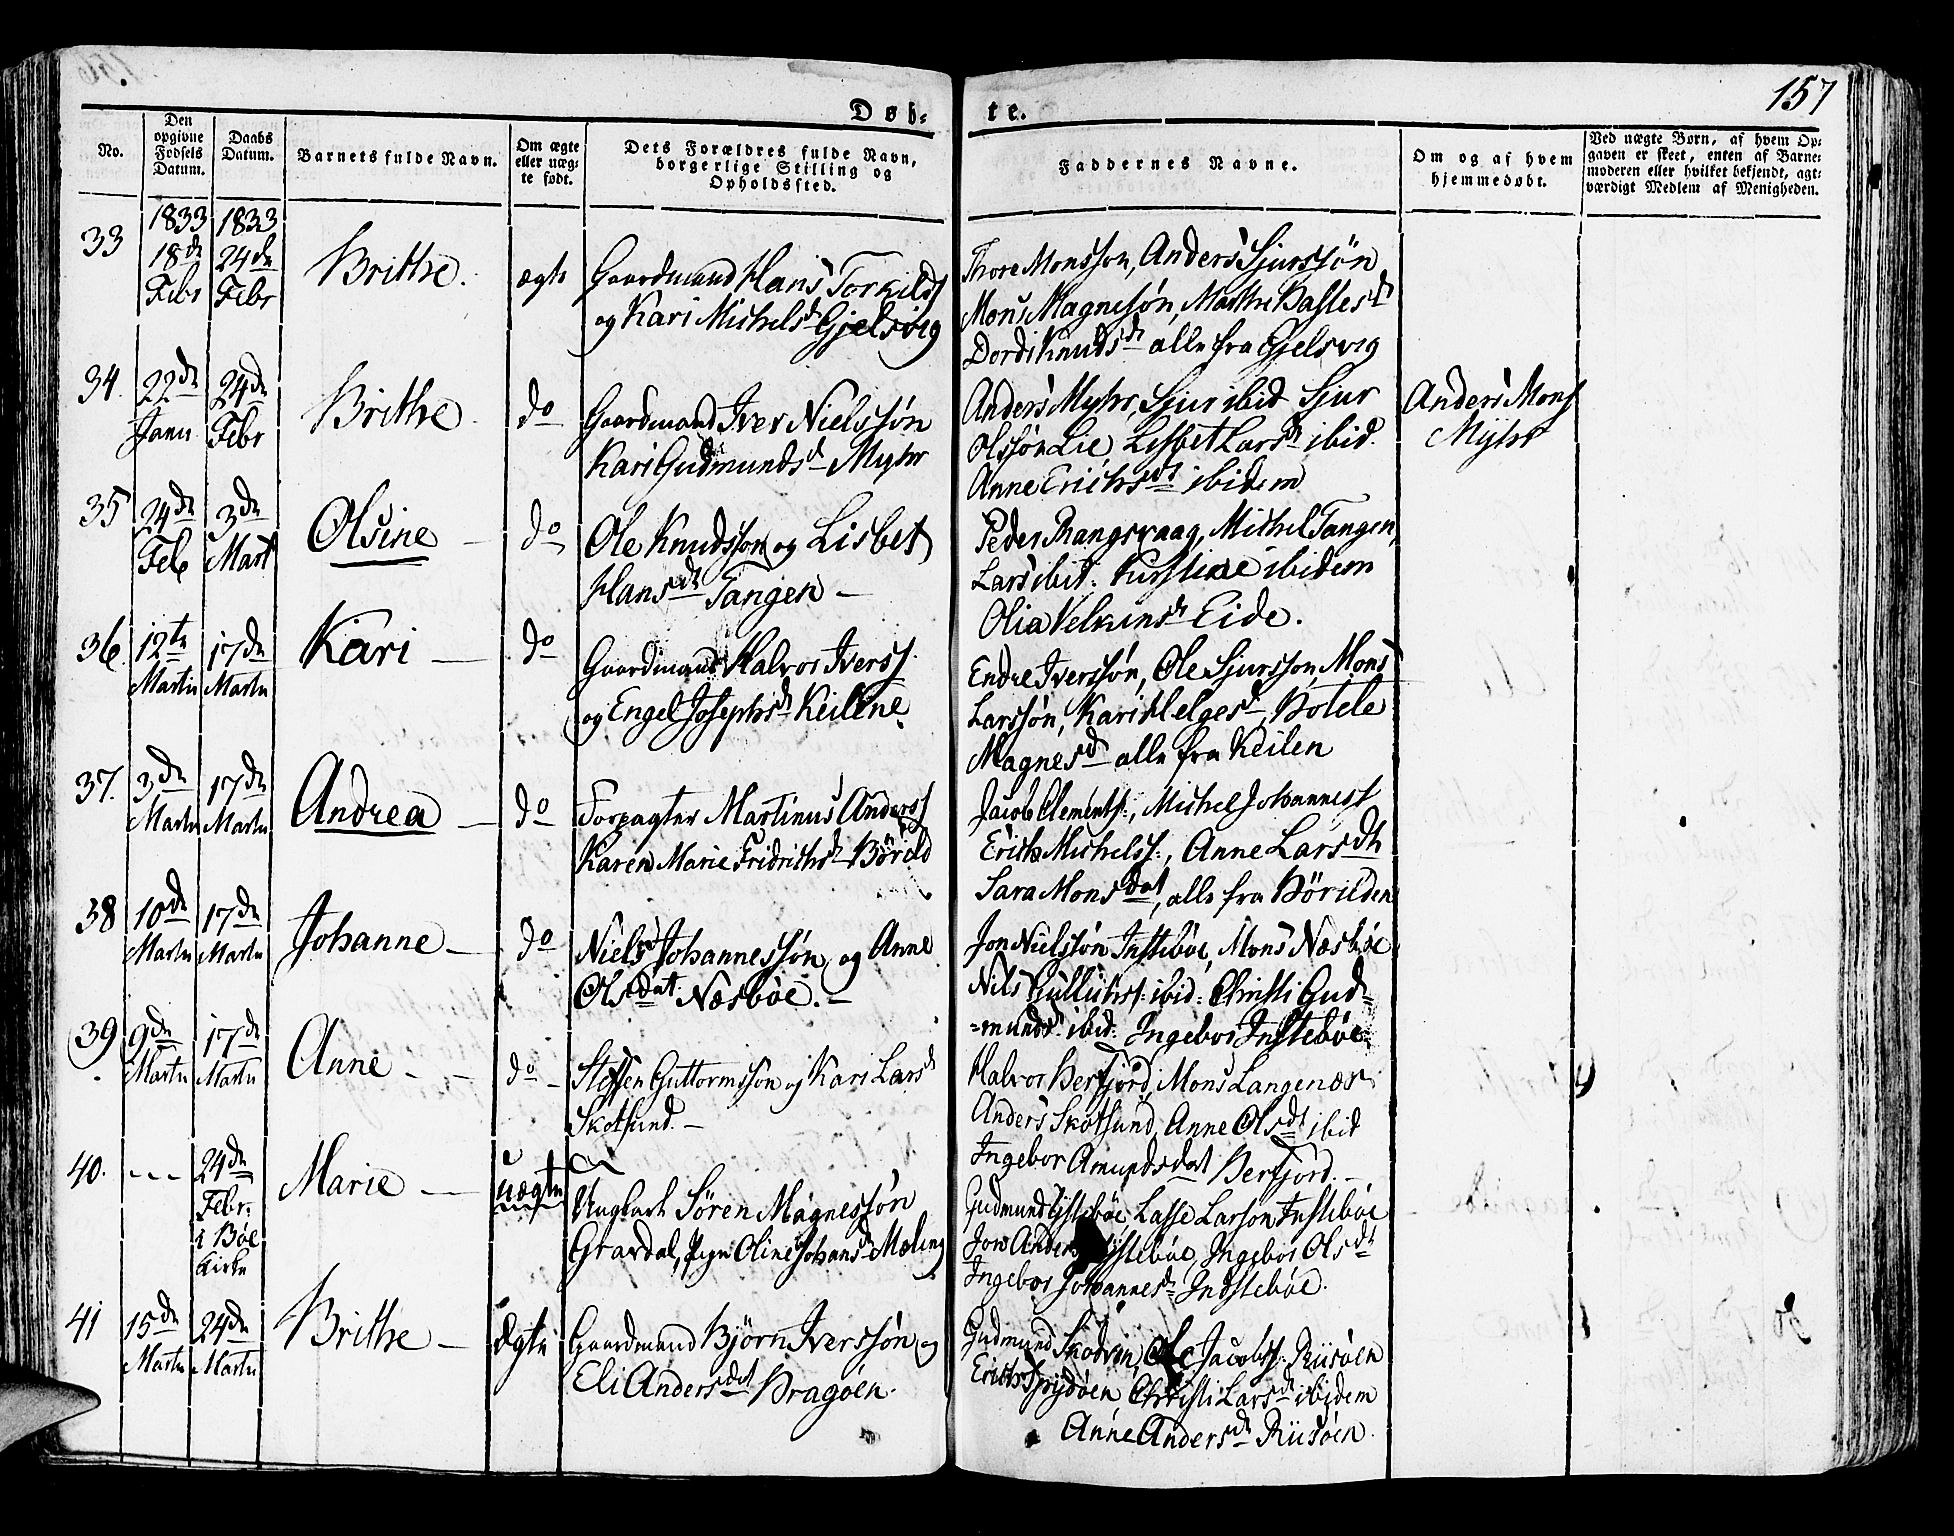 157
Døb-
te.
No.
Den opgivne Fødsels Datum.
Daabs Datum.
Barnets fulde Navn.
Om ægte eller uæg-te født.
Dets Forældres fulde Navn, borgerlige Stilling og Opholdssted.
Faddernes Navne.
Om og af hvem hjemmedøbt.
Ved uægte Børn, af hvem Op-gaven er skeet, enten af Barne-moderen eller hvilket bekjendt, agt-værdigt Medlem af Menigheden.
1833 1833
33 18de Febr 24de Febr Brithe. ægte
Gaardmand Hans Torkilds
og Kari Michelsd Gjelsvig
Thore Monsson, Anders Sjurssøn
Mons Magnesøn, Marthe
Dordi Knudsd alle fra Gjelsvig
34. 22de Janu 24de Febr Brithe do
Gaardmand Iver Nielssøn
Kari Gudmundsd Myhr
Anders Myhr, Sjur ibid Sjur
Olssøn Lie, Lisbet Larsd ibid.
Anne Erichsdt ibidem
Anders Mons
Myhr
35 24de Feb 3de Mart Olsine do
Ole Knudsson og Lisbet
Hansdt Tangen
Peder Rangsvaag, Michel Tangen
Lars ibid: ibidem
Olia Eide.
36 12te Martii 17de Martii Kari do
Gaardmand Halvor Iverss.
og Engel Josephsd Keilene
Endre Iverssøn, Ole Sjursson, Mons
Larssøn, Kari Helgesd, Botele
Magnesd alle fra Keilen
37. 3de Martii 17de Martii Andrea do
Forpagter Martinus Anderss
Karen Marie Fridrichsd Børild
Jacob Clements:, Michel Johanness
Erich Michelss:, Anne Larsdt
Sara Monsdat, alle fra Börilden
38 10de Martii 17de Martii Johanne do
Niels Johannessøn og Anne
Olsdat Næsbøe.
Jon Nielssøn Instebøe, Mons Næsbøe
Nils ibid: Christi Gud-
-mundsd ibid: Ingebor Instebøe
39 9de Martii 17de Martii Anne do
Steffen Guttormssøn og Kari Larsd
Skotsund.
Halvor Herfjord, Mons Langenæs
Anders Skotsund, Anne Olsdt ibid
Ingebor Amundsdat Herfjord.
40. --- 24de Febr: i Bøe Kirke Marie uægte
Ungkarl Søren Magnessøn
Gravdal, Pige Oline Johansd Mæling
Gudmund Lasse Larson Instebøe
Jon Anders Instebøe, Ingebor Olsdt
Ingebor Johannesd Indstebøe.
41 15de Martii 24de Martii Brithe Ægte
Gaardmand Bjørn Iverssøn og
Eli Andersdat Kragøen.
Gudmund Skodvin, Ole Jacobs: Riisøen
Erich Christi Larsd ibidem
Anne Andersd Riisøen.